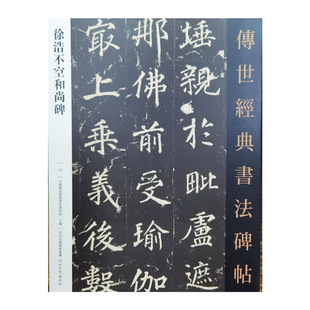 傳世經典書法碑帖
埵親於毗盧遮
那佛前受瑜伽
冣上乘義後數
徐浩不空和尚碑